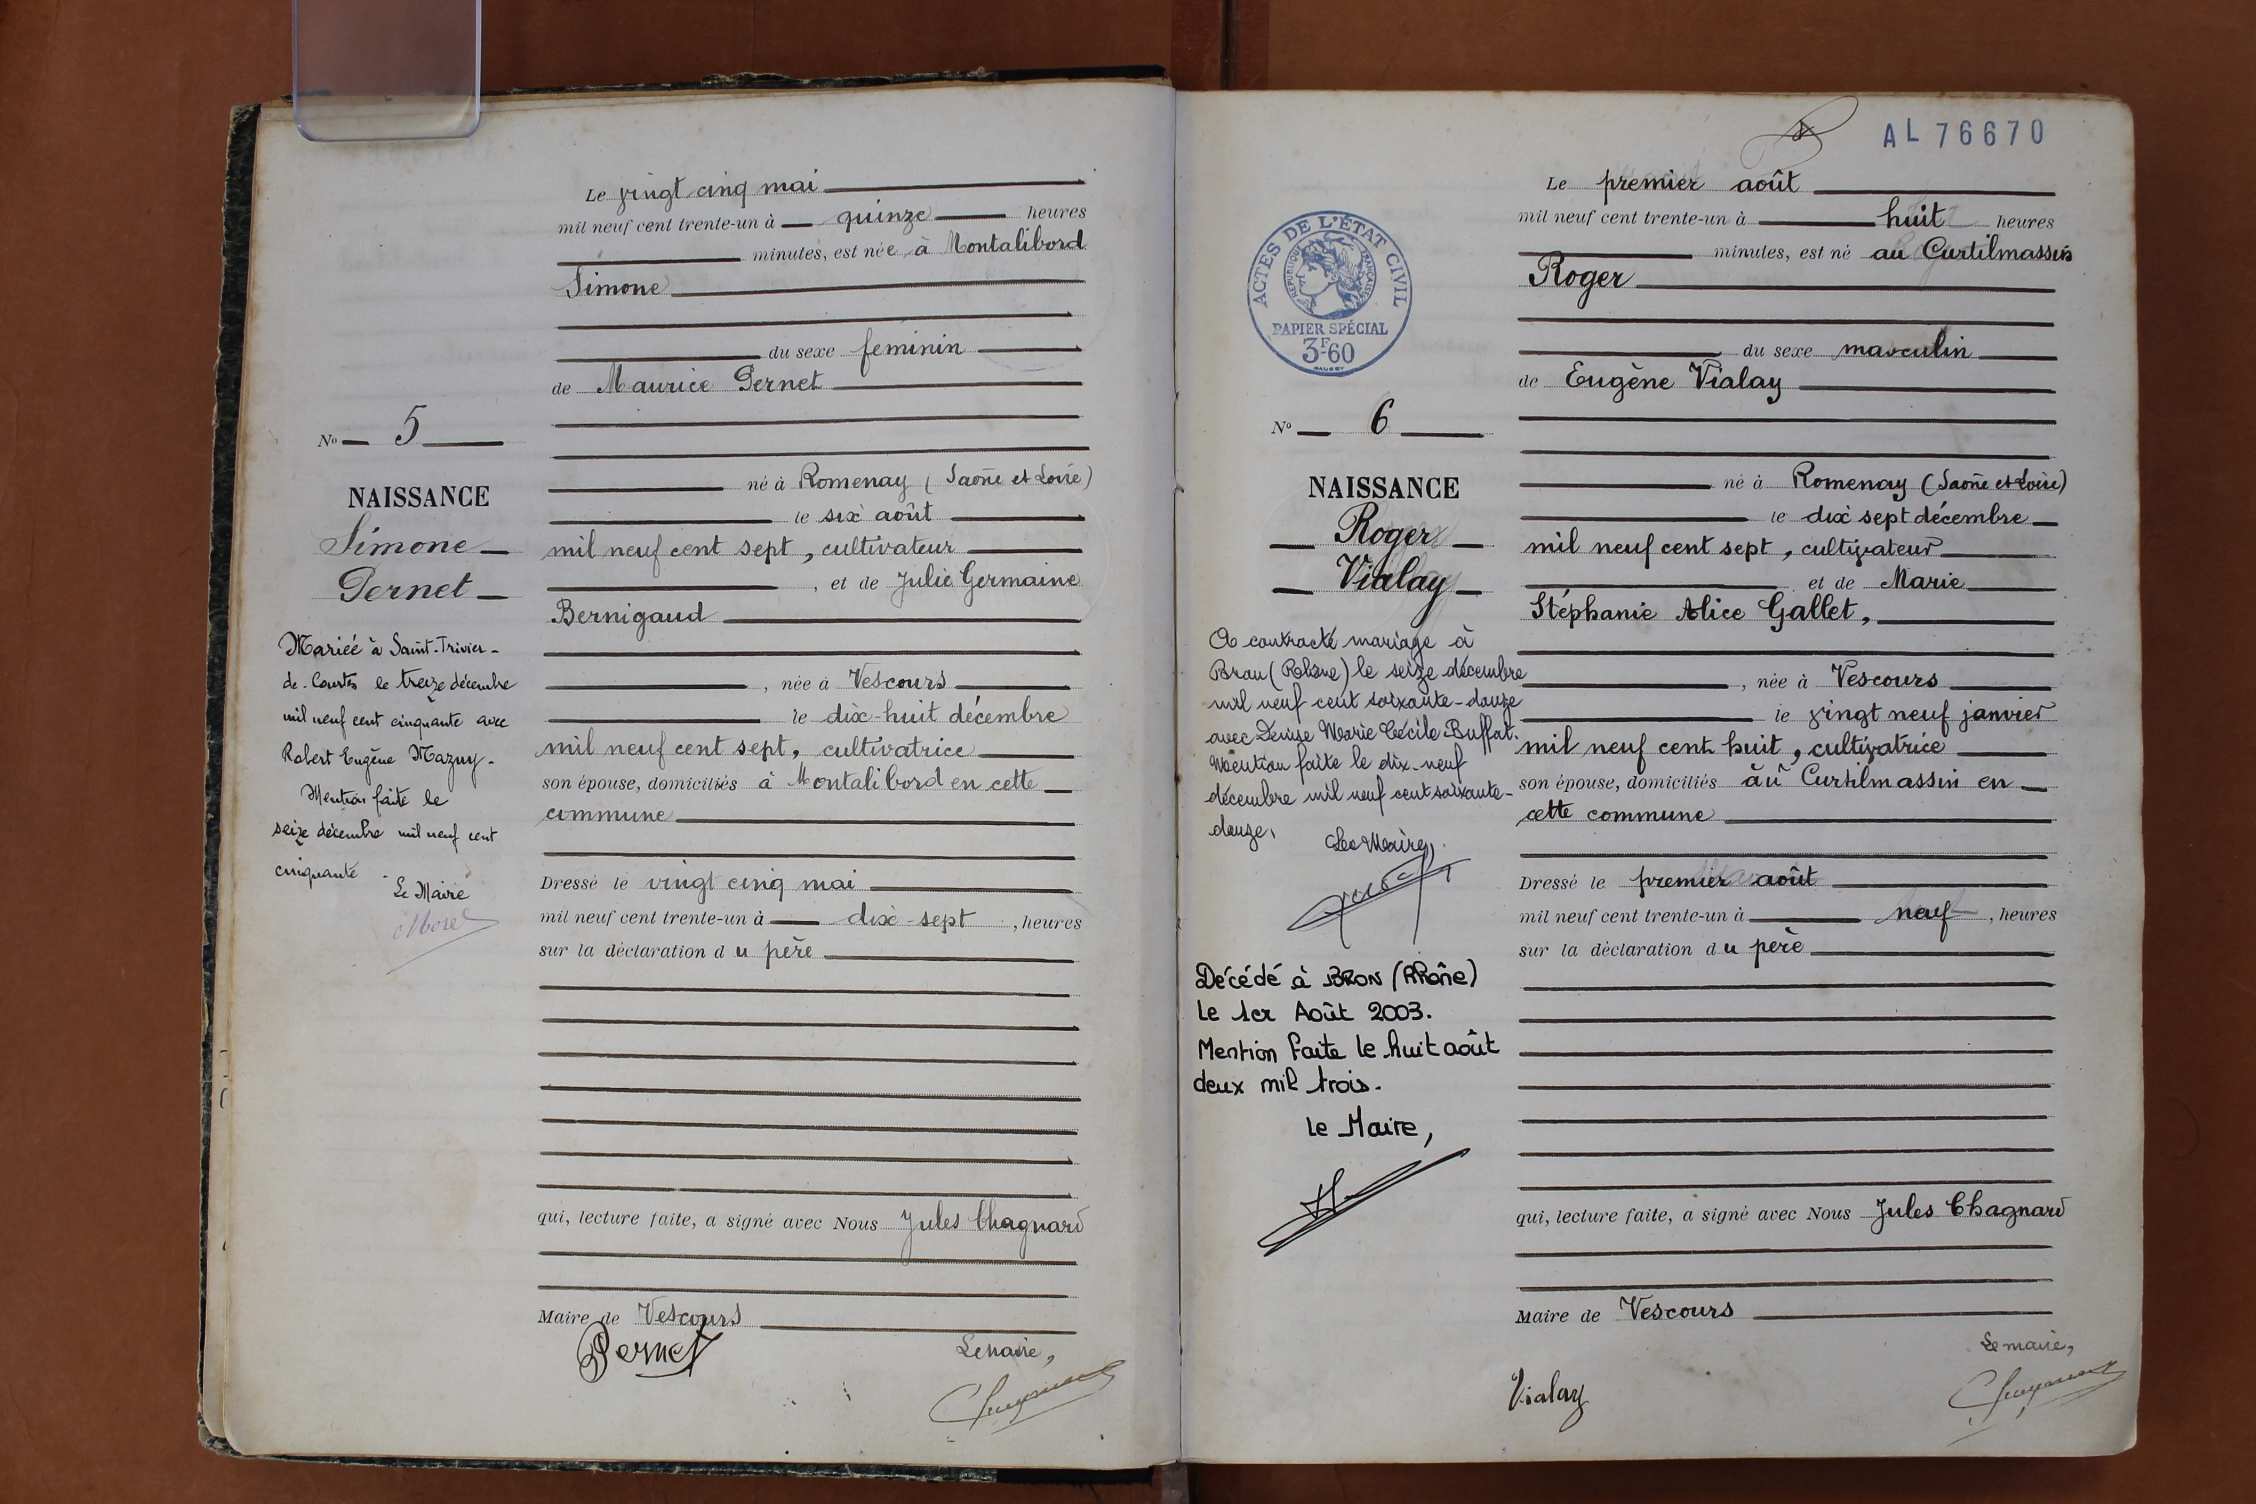 Le vingt cinq mai
mil neuf cent trente-un à quinze heures
minutes, est née à Montalibord
Simone
du sexe féminin
de Maurice Pernet
No 5
né à Romenay (Saône et Loire)
NAISSANCE
le six août
Simone
mil neuf cent sept, cultivateur
Pernet
, et de Julie Germaine
Bernigaud
Mariée à Saint-Trivier-
de-Courtes le treize décembre
mil neuf cent cinquante avec
Robert Eugène Mazuy.
Mention faite le
seize décembre mil neuf cent
cinquante.
Le Maire
Morel
, née à Vescours
le dix-huit décembre
mil neuf cent sept, cultivatrice
son épouse, domiciliés à Montalibord en cette
commune
Dressé le vingt cinq mai
mil neuf cent trente-un à dix-sept, heures
sur la déclaration du père
qui, lecture faite, a signé avec Nous Jules Chagnard
Maire de Vescours
Pernet
Le maire,
AL 76670
Le premier août
mil neuf cent trente-un à huit heures
minutes, est né au Curtilmassin
Roger
du sexe masculin
de Eugène Vialay
ACTES DE L'ÉTAT CIVIL
RÉPUBLIQUE FRANÇAISE
PAPIER SPÉCIAL
3F-60
No 6
né à Romenay (Saône et Loire)
NAISSANCE
le dix sept décembre
Roger
mil neuf cent sept, cultivateur
Vialay
et de Marie
Stéphanie Alice Gallet,
A contracté mariage à
Bron (Rhône) le seize décembre
mil neuf cent soixante-douze
avec Denise Marie Cécile Buffat.
Mention faite le dix-neuf
décembre mil neuf cent soixante-
douze,
Le Maire,
Décédé à BRON (Rhône)
Le 1er Août 2003.
Mention faite le huit août
deux mil trois.
Le Maire,
, née à Vescours
le vingt neuf janvier
mil neuf cent huit, cultivatrice
son épouse, domiciliés au Curtilmassin en
cette commune
Dressé le premier août
mil neuf cent trente-un à neuf, heures
sur la déclaration du père
qui, lecture faite, a signé avec Nous Jules Chagnard
Maire de Vescours
Le maire,
Vialay